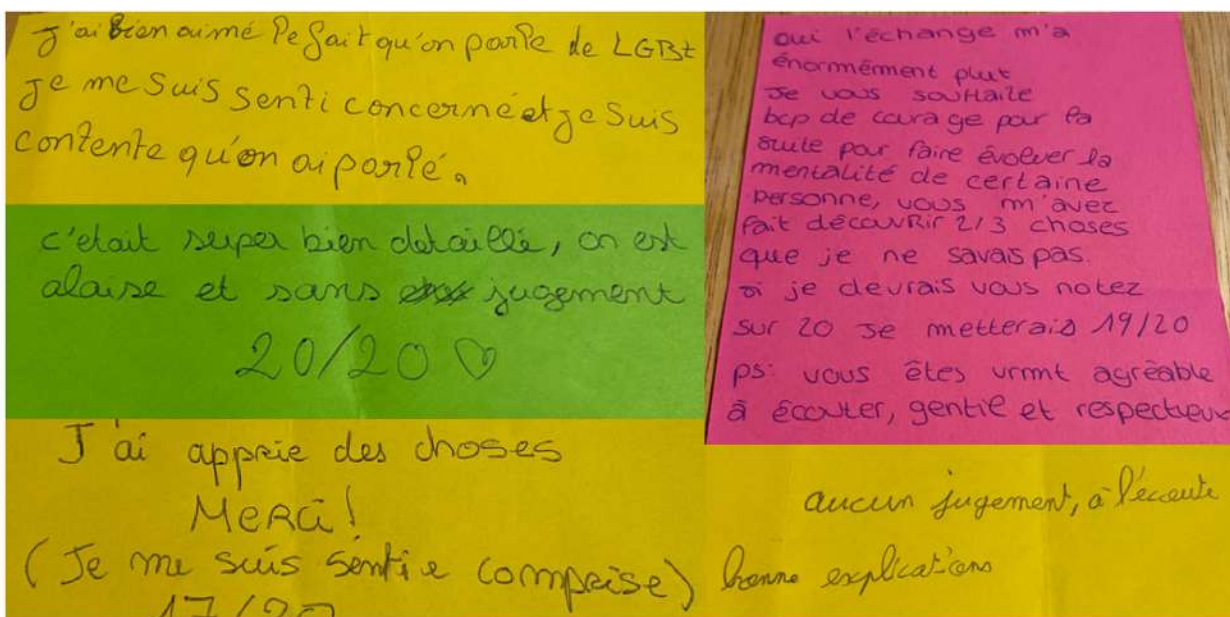 J'ai Bien aimé le fait qu'on parle de LGBt
Je me suis senti concerné et je suis
contente qu'on ai parlé.
c'etait super bien detaillé, on est
alaise et sans jugement
20/20 ♡
J'ai apprie des choses
MERCi!
(Je me suis sentie comprise)
17/20
oui l'échange m'a
énormément plut
Je vous souhaite
bcp de courage pour la
suite pour faire évoluer la
mentalité de certaine
personne, vous m'avez
fait découvrir 2/3 choses
que je ne savais pas.
si je devrais vous notez
sur 20 je metterais 19/20
ps: vous êtes vrmt agréable
à écouter, gentil et respectueux
aucun jugement, à l'écoute
bonne explications